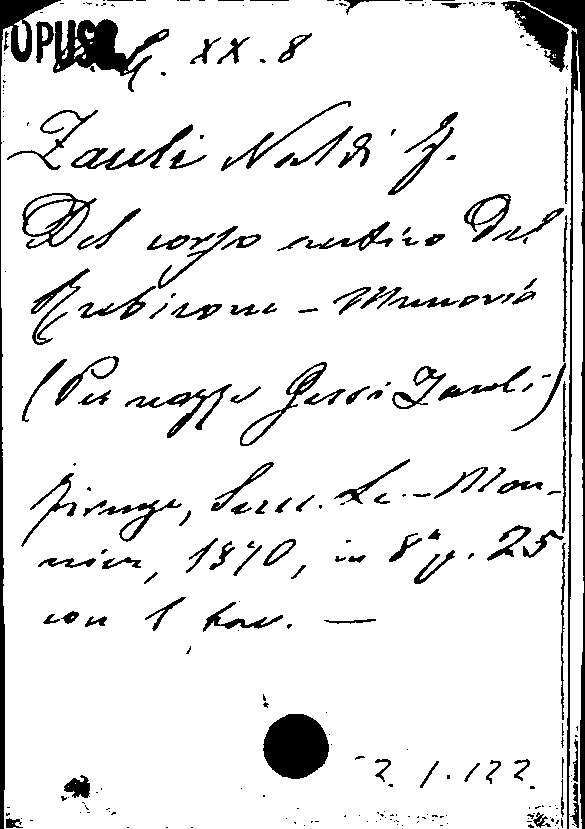 OPUSC. XX. 8
Zauli Naldi F.
Del corso antico del
Rubicone - Memoria
(Per nozze Gessi Zauli)
Firenze, Succ. Le-Mon-
nier, 1870, in 8° p. 25
con 1 tav. —
2. 1. 122.